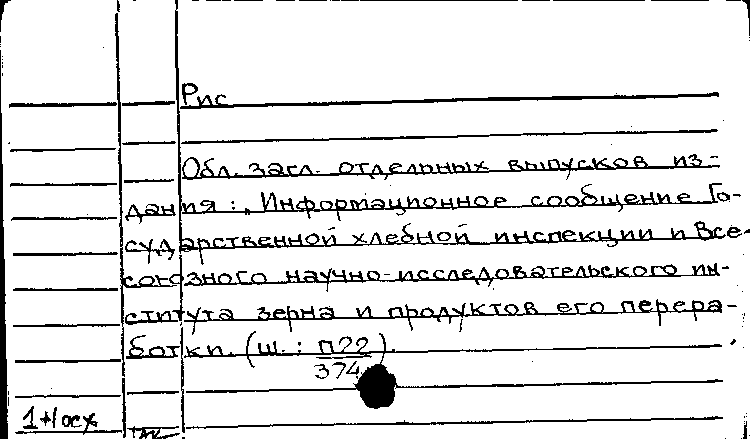 Рис
Обл. загл. отдельных выпусков из-
дания: „Информационное сообщение Го-
сударственной хлебной инспекции и Все-
союзного научно-исследовательского ин-
ститута зерна и продуктов его перера-
ботки. (Ш.: П22
374).